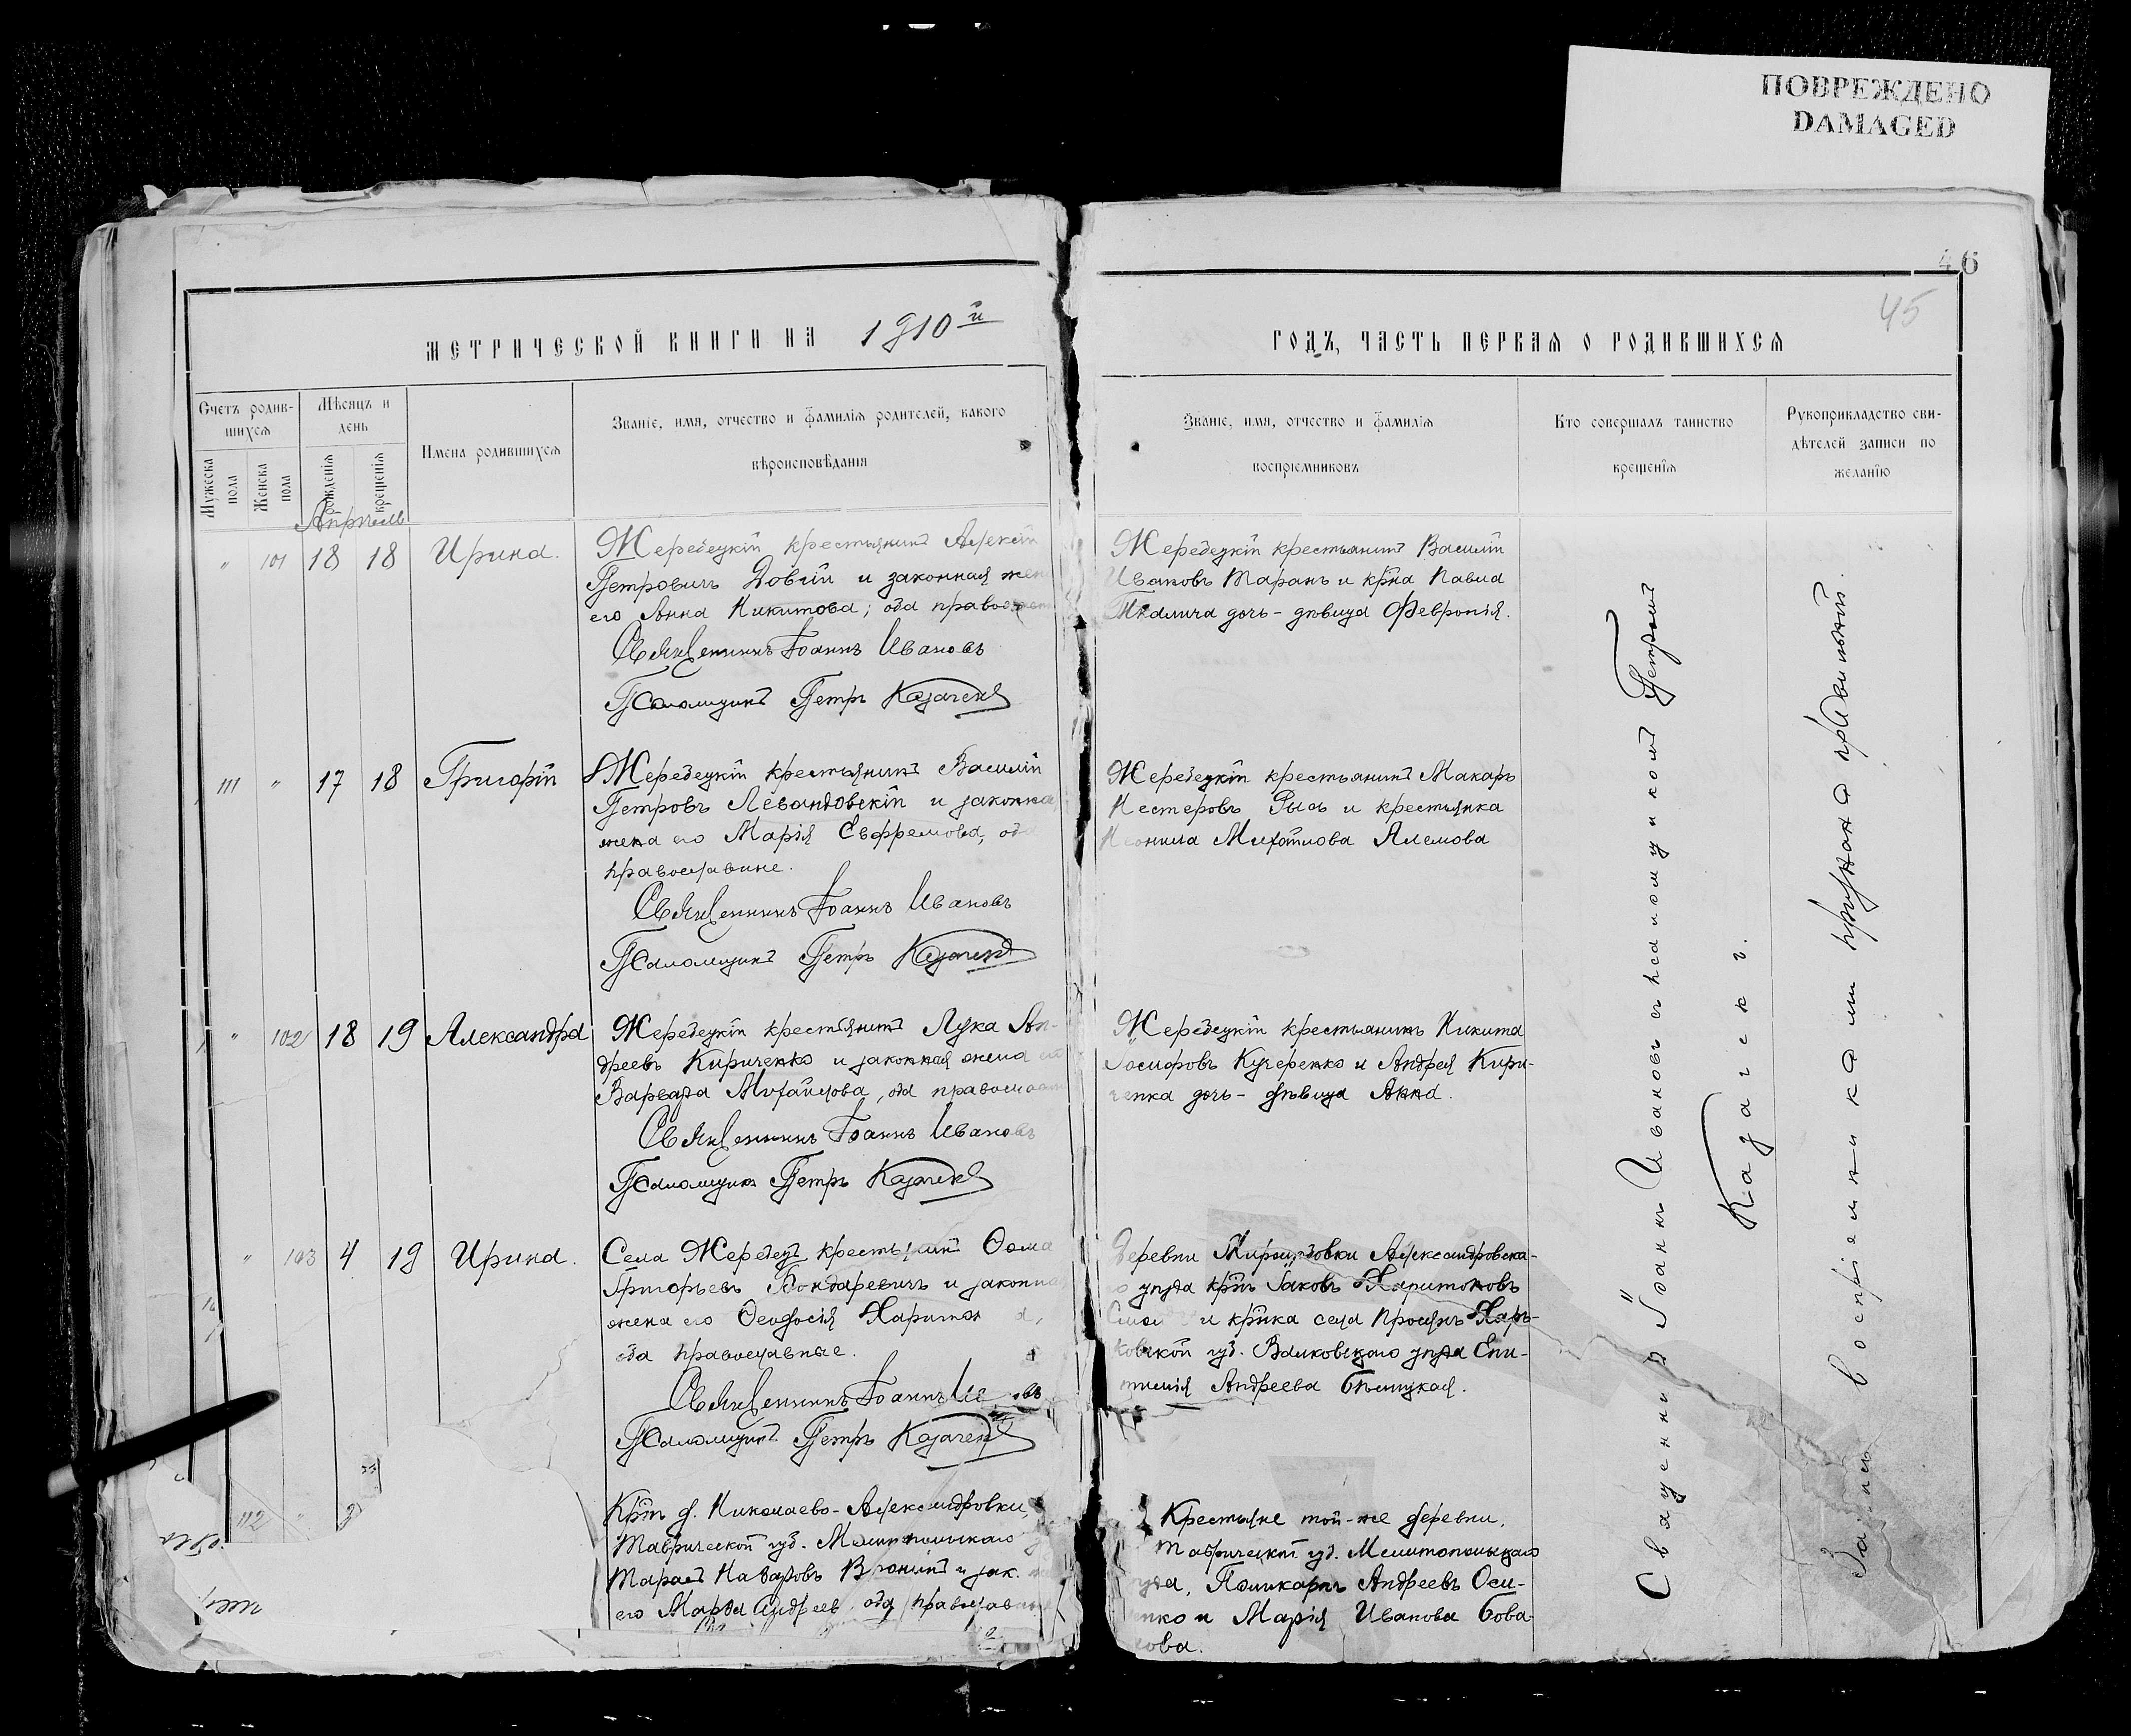 ПОВРЕЖДЕНО
DAMAGED
46
45
МЕТРИЧЕСКОЙ КНИГИ НА 1910й
ГОДЪ, ЧАСТЬ ПЕРВАЯ О РОДИВШИХСЯ
Счетъ родив-
шихся
Мужеска пола
Женска пола
Мѣсяцъ и
день
рожденія
крещенія
Имена родившихся
Званіе, имя, отчество и фамилія родителей, какого
вѣроисповѣданія
Званіе, имя, отчество и фамилія
воспріемниковъ
Кто совершалъ таинство
крещенія
Рукоприкладство сви-
дѣтелей записи по
желанію
Апрѣль
" 101 18 18 Ирина.
Жеребецкій крестьянинъ Алексѣй
Петровичъ Довгій и законная жена
его Анна Никитова; оба православ
Священникъ Іоаннъ Ивановъ
Псаломщикъ Петръ Казачекъ
Жеребецкій крестьянинъ Василій
Ивановъ Таранъ и крⷭ҇на Павла
Ткалича дочь - дѣвица Февронія.
111 " 17 18 Григорій
Жеребецкій крестьянинъ Василій
Петровъ Левандовскій и законна
жена его Марія Евфремова, оба
православние.
Священникъ Іоаннъ Ивановъ
Псаломщикъ Петръ Казачекъ
Жеребецкій крестьянинъ Макаръ
Нестеровъ Рысь и крестьянка
Михайлова
" 102 18 19 Александра
Жеребецкій крестьянинъ Лука Ан-
дреевъ Кириченко и законная жена его
Варвара Михайлова, оба православ
Священникъ Іоаннъ Ивановъ
Псаломщикъ Петръ Казачекъ
Жеребецкій крестьянинъ Никита
Іосифовъ Кучеренко и Андрея Кири-
ченка дочь - дѣвица Анна.
" 103 4 19 Ирина.
Села Жеребецъ крестьянинъ Ѳома
Григорьевъ Бондаревичъ и законна
жена его Ѳеодосія Харитон а,
оба православные.
Священникъ Іоаннъ Ив овъ
Псаломщикъ Петръ Казачекъ
деревни Александровска-
уѣзда крⷭ҇нъ Іаковъ Харитоновъ
и крⷭ҇нка села Просянъ Харь-
ковской губ. Валковскаго уѣзда Епи-
стимія Андреева
112 "
Крⷭ҇нъ д. Николаево-Александровки,
Таврической губ. Мелитопольскаго
Тарасъ Назаровъ и зак.
его Марѳа Андреев оба православн
Крестьяне той-же деревни,
Таврической губ. Мелитопольскаго
уѣзда, Поликарпъ Андреевъ Оси-
енко и Марія Иванова Бова-
кова.
Священникъ Іоаннъ Ивановъ съ псаломщикомъ Петромъ
Казачекъ.
Записи воспріемниками признана правильной.